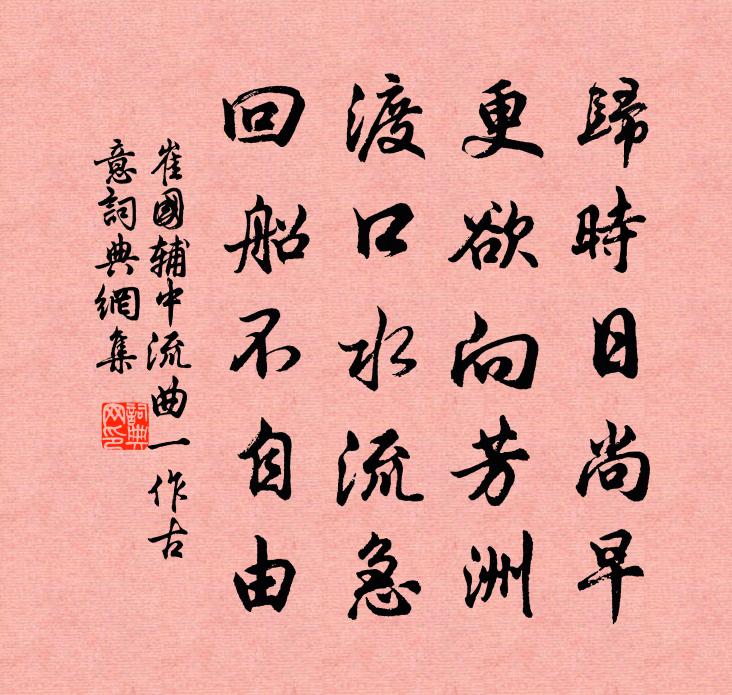 歸時日尚早
更欲向芳洲
渡口水流急
回船不自由
崔國辅中流曲一作古
意詞典網集
詞典网印